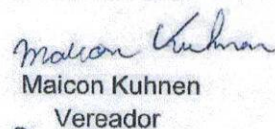 Maicon Kuhnen
Maicon Kuhnen
Vereador